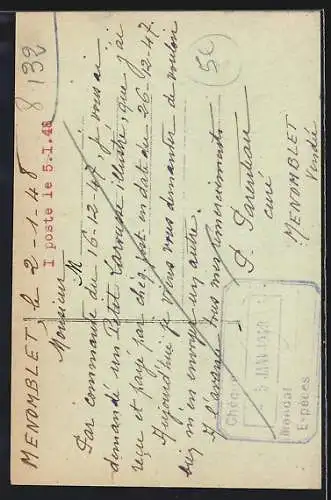 8132
5c
MENOMBLET, le 2-1-48
1 poste le 5.1.48
Monsieur
Par commande du 16-12-47, je vous ai
demandé un Petit Larousse illustré, que j'ai
reçu et payé par chèq. post. en date du 26-12-47.
Aujourd'hui je viens vous demander de vouloir
bien m'en envoyer un autre.
A l'avance tous mes remerciements
P. Parenteau
curé
MENOMBLET
Vendée
Chèque
5 JANV 1948
Mandat
Espèces